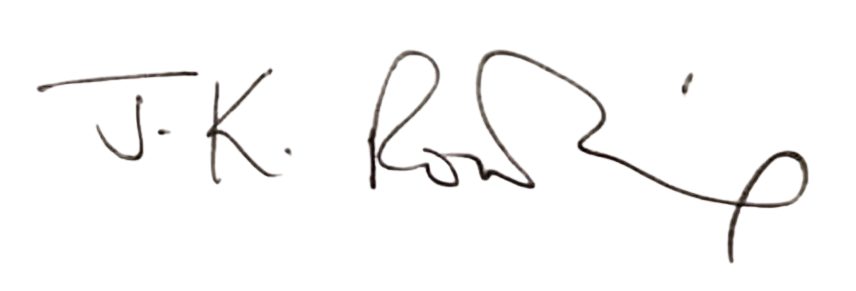 J. K. Rowling